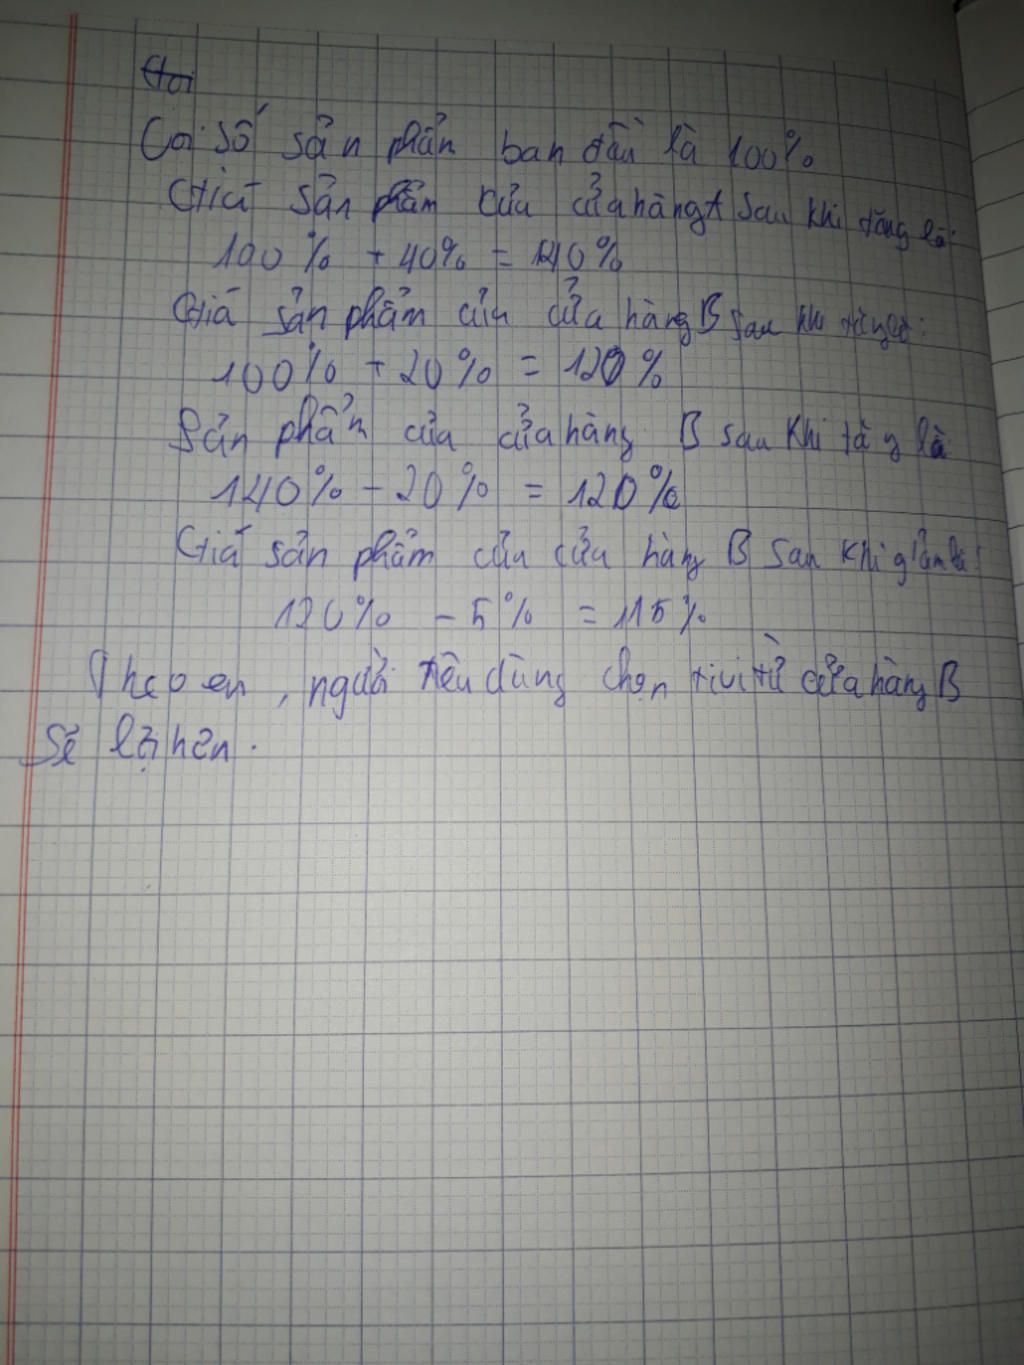 Coi số sản phẩn ban đầu là 100%
Giá sản phẩm của cửa hàng A sau khi tăng là:
100% + 40% = 140%
Giá sản phẩm của cửa hàng B sau khi tăng là:
100% + 20% = 120%
Sản phẩm của cửa hàng B sau khi tăg là
140% - 20% = 120%
Giá sản phẩm của cửa hàng B sau khi giảm là:
120% - 5% = 115%
Theo em, người tiêu dùng chọn tivi từ cửa hàng B
sẽ lợi hơn.